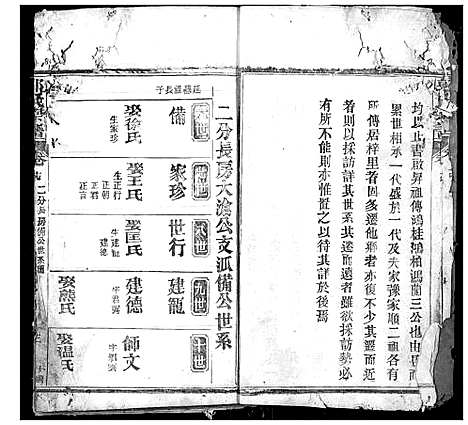 均以此書啟昇祖傳鴻桂鴻柏鴻蘭三公也由
累世相承一代盛於一代及夫家豫家順二祖各有
所傳居梓里者固多遷他鄉者亦復不少其遷而近
者則以採訪詳其世系其遷而遠者雖欲採訪勢必
有所不能則亦惟置之以待其詳於後焉
二分長房大滄公支派備公世系
長子
六世
備
娶徐氏
生家珍
家珍
娶王氏
生正行
正朝
正君
正言
八世
世行
娶匡氏
生建龍
建德
九世
建龍
建德
字君
娶熊氏
師文
娶溫氏
二分長房備公世系圖